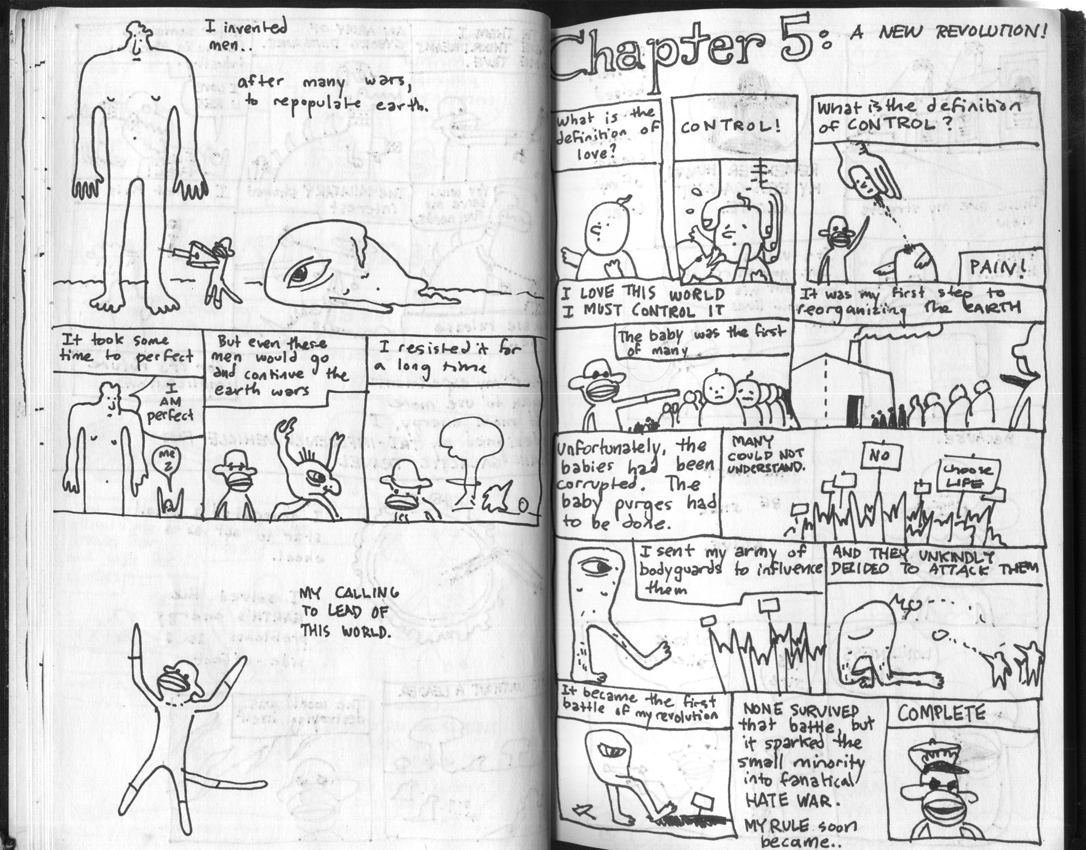 I invented
men..
after many wars,
to repopulate earth.
It took some
time to perfect
I
AM
perfect
me
2
But even these
men would go
and continue the
earth wars
I resisted it for
a long time
MY CALLING
TO LEAD OF
THIS WORLD.
Chapter 5: A NEW REVOLUTION!
What is the
definition of
love?
CONTROL!
What is the definition
of CONTROL?
PAIN!
I LOVE THIS WORLD
I MUST CONTROL IT
The baby was the first
of many
It was my first step to
reorganizing the EARTH
Unfortunately, the
babies had been
corrupted. The
baby purges had
to be done.
MANY
COULD NOT
UNDERSTAND.
NO
choose
LIFE
I sent my army of
bodyguards to influence
them
AND THEY UNKINDLY
DECIDED TO ATTACK THEM
It became the first
battle of my revolution
NONE SURVIVED
that battle, but
it sparked the
small minority
into fanatical
HATE WAR.
MY RULE soon
became..
COMPLETE